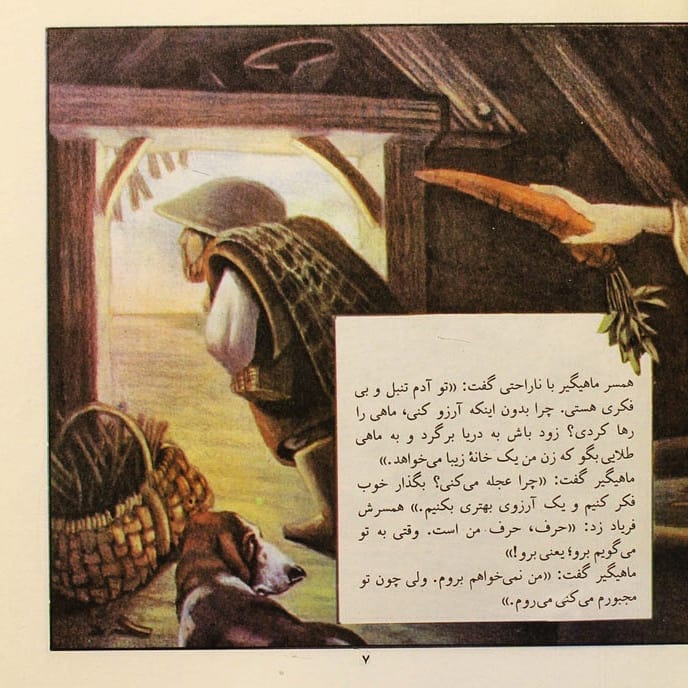 همسر ماهیگیر با ناراحتی گفت: «تو آدم تنبل و بی
فکری هستی. چرا بدون اینکه آرزو کنی، ماهی را
رها کردی؟ زود باش به دریا برگرد و به ماهی
طلایی بگو که زن من یک خانهٔ زیبا می‌خواهد.»
ماهیگیر گفت: «چرا عجله می‌کنی؟ بگذار خوب
فکر کنیم و یک آرزوی بهتری بکنیم.» همسرش
فریاد زد: «حرف، حرف من است. وقتی به تو
می‌گویم برو؛ یعنی برو!»
ماهیگیر گفت: «من نمی‌خواهم بروم. ولی چون تو
مجبورم می‌کنی می‌روم.»
۷